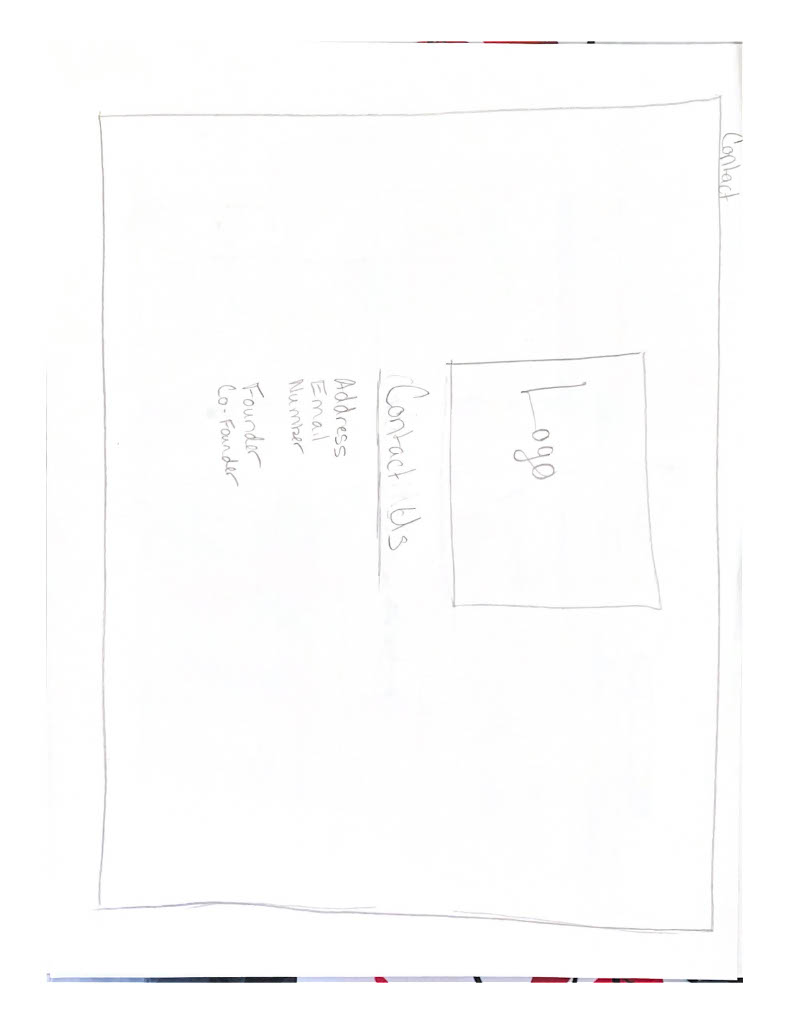 Contact
Logo
Contact Us
Address
Email
Number
Founder
Co-Founder